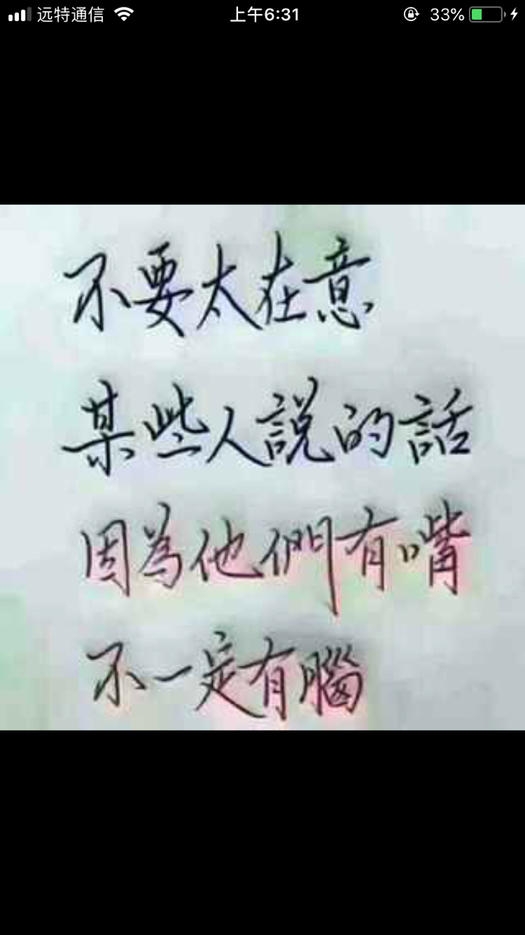 远特通信 上午6:31 33%
不要太在意
某些人說的話
因為他們有嘴
不一定有腦